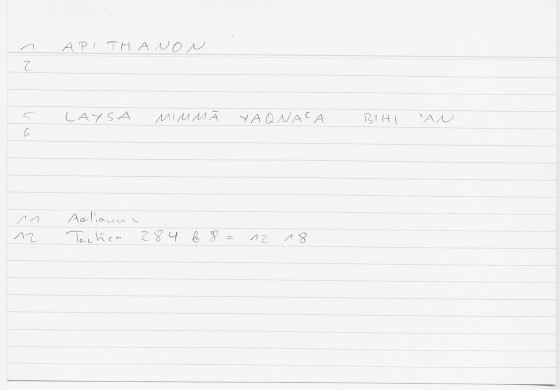 1 APITHANON
2
5 LAYSA MIMMĀ YAQNAʿA BIHI ʾAN
6
11 Aelianus
12 Tactica 284 b 8 = 12 18